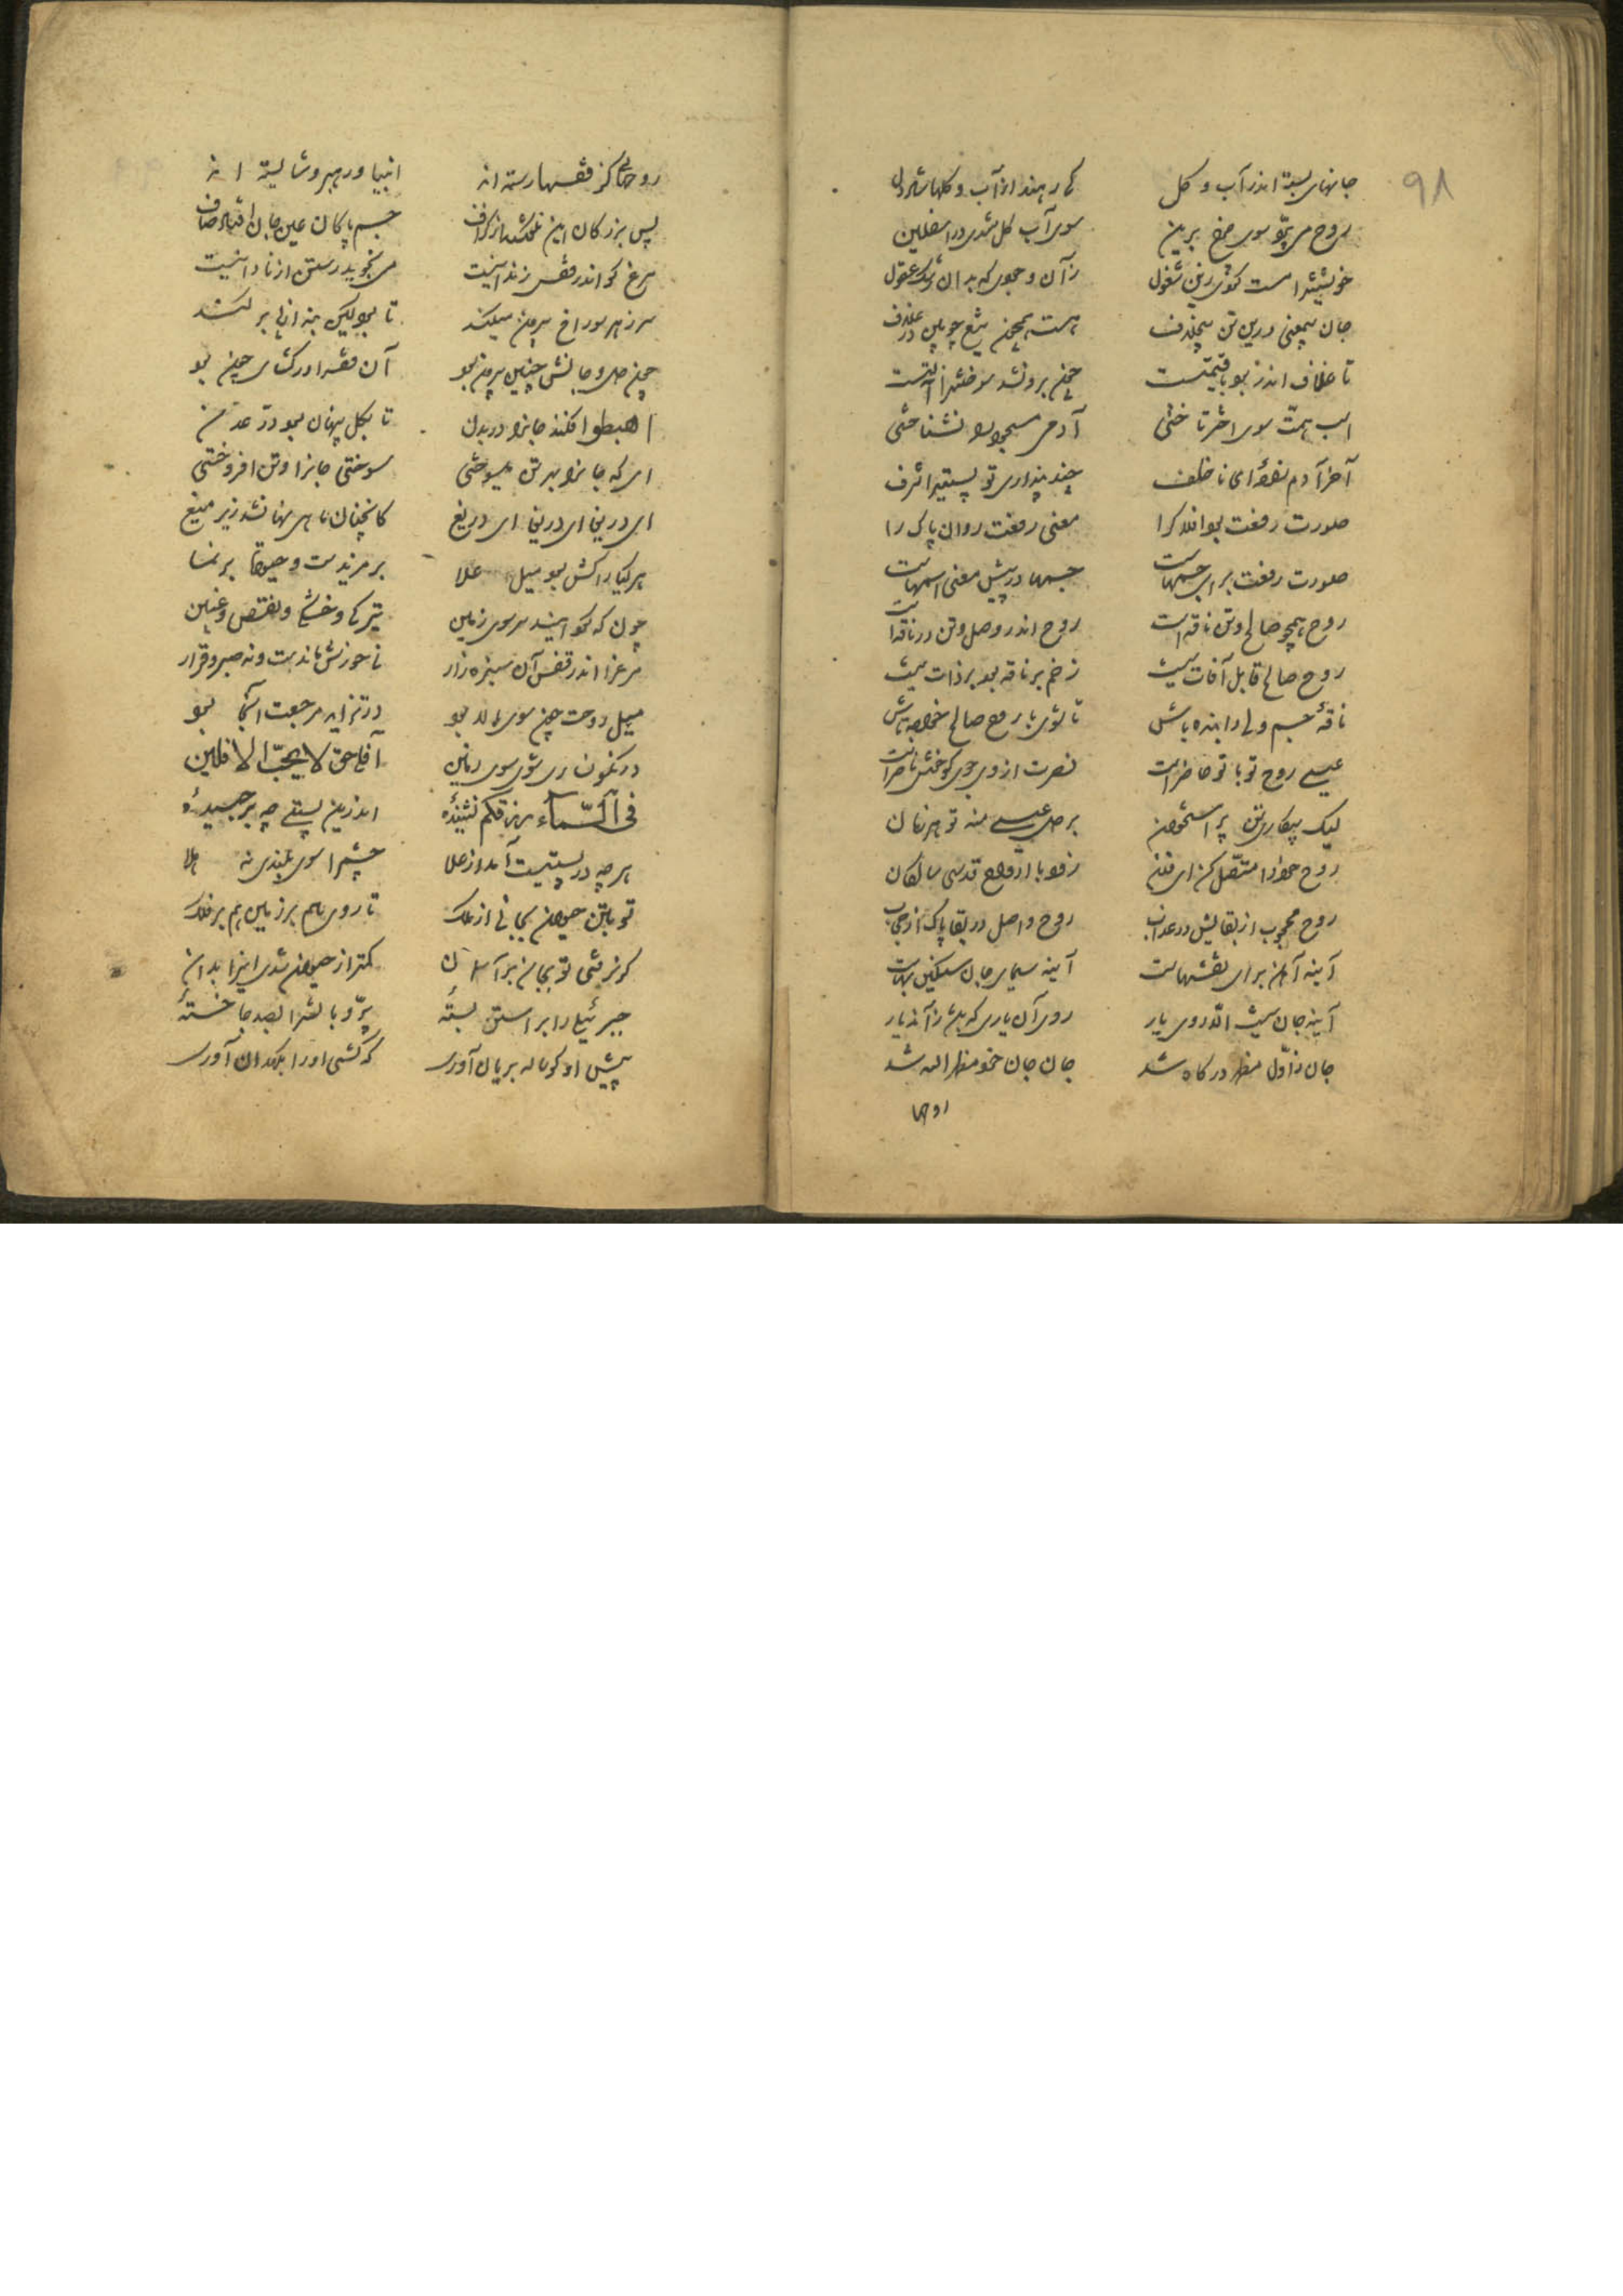 ۹۸
جانهای بسته اندر آب و گل که رهند از آب و گلها شاد دل
روح می پردت سوی چرخ برین سوی آب گل شدی در اسفلین
خویشتن را مسخ کردی زین سفول زآن وجودی که بد آن رشک عقول
جان بی معنی درین تن بیخلاف هست همچون تیغ چوبین در غلاف
تا غلاف اندر بود با قیمتست چون برون شد سوختن را آلتست
اسب همت سوی اختر تاختی آدم مسجود را نشناختی
آخر آدم زاده ای ناخلف چند پنداری تو پستی را شرف
صورت رفعت بود افلاک را معنی رفعت روان پاک را
صورت رفعت برای جسمهاست جسمها در پیش معنی اسمهاست
روح همچو صالح و تن ناقه است روح اندر وصل و تن در فاقه است
روح صالح قابل آفات نیست زخم بر ناقه بود بر ذات نیست
ناقهٔ جسم ولی را بنده باش تا شوی با روح صالح خواجه تاش
عیسی روح تو با تو حاضر است نصرت از وی جوی کو خوش ناصر است
لیک بیگار تن پر استخوان بر دل عیسی منه تو هر زمان
روح خود را متصل کن ای فلان زود با ارواح قدسی سالکان
روح محجوب از بقا بس در عذاب روح واصل در بقا پاک از حجاب
آینه آهن برای نقشهاست آینه سیمای جان سنگین بهاست
آینه جان نیست الا روی یار روی آن یاری که باشد زآن دیار
جان ز اول مظهر درگاه شد جان جان خود مظهر الله شد
روحها
روحهایی کز قفسها رسته اند انبیا و رهبر و شایسته اند
پس بزرگان این نگفتند از گزاف جسم پاکان عین جان افتاد صاف
مرغ کو اندر قفس زندانیست می نجوید رستن از نادانیست
سر ز هر سوراخ بیرون میکند تا بود کین بند از پا بر کند
چون دل و جانش چنین بیرون بود آن قفس را در گشایی چون بود
اهبطوا افکند جان را در بدن تا بگل پنهان بود در عدن
ای که جان را بهر تن میسوختی سوختی جان را و تن افروختی
ای دریغا ای دریغا ای دریغ کانچنان ماهی نهان شد زیر میغ
هر گیا را کش بود میل علا در مزیدست و حیوة و نما
چون که گردانید سر سوی زمین در کمی و خشکی و نقص و غبین
مرغ را اندر قفس آن سبزه زار نه خورش ماندست و نه صبر و قرار
میل روحت چون سوی بالا بود در تزاید مرجعت آنجا بود
ور نگون ساری شوی سوی زمین آفلی حق لا یحب الآفلین
فی السماء رزقکم نشنیده اندرین پستی چه بر چسبیده
هر چه در پستیست آمد از علا چشم را سوی بلندی نه هلا
تو بتن حیوان بجانی از ملک تا روی هم بر زمین هم بر فلک
گر نرفتی تو بجان بر آسمان کمتر از حیوان شدی این را بدان
جبرئیل را بر استن بسته پر و بالش را بصد جا خسته
پیش او گوساله بریان آوری که کشی او را بکهدان آوری